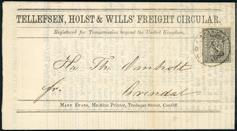 TELLEFSEN, HOLST & WILLS' FREIGHT CIRCULAR.
Registered for Transmission beyond the United Kingdom.
Hr. Ths.
fr. Arendal
MARK EVANS, Machine Printer, Tredegar Street, Cardiff.